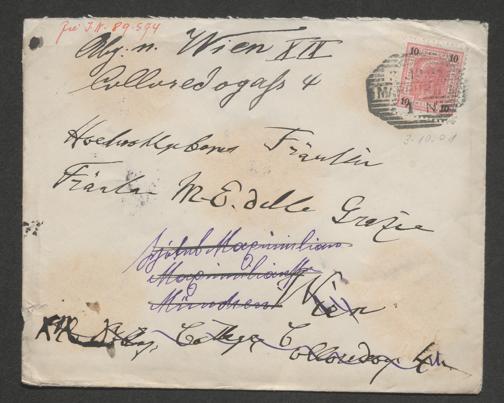 zu I.N. 89.594
Abz. n. Wien XIX
Colloredogasse 4
10 10
10 10
Hochwohlgeboren Fräulein
Fräulein M. E. delle Grazie
Hôtel Maximilian
Maximilianstr.
München Wien
Cottage Colloredog. 4